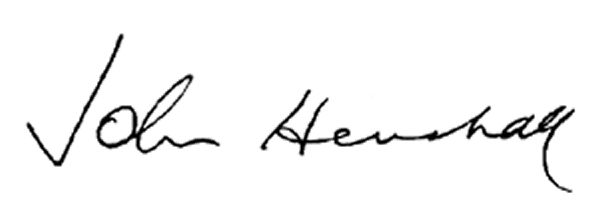 John Henshall